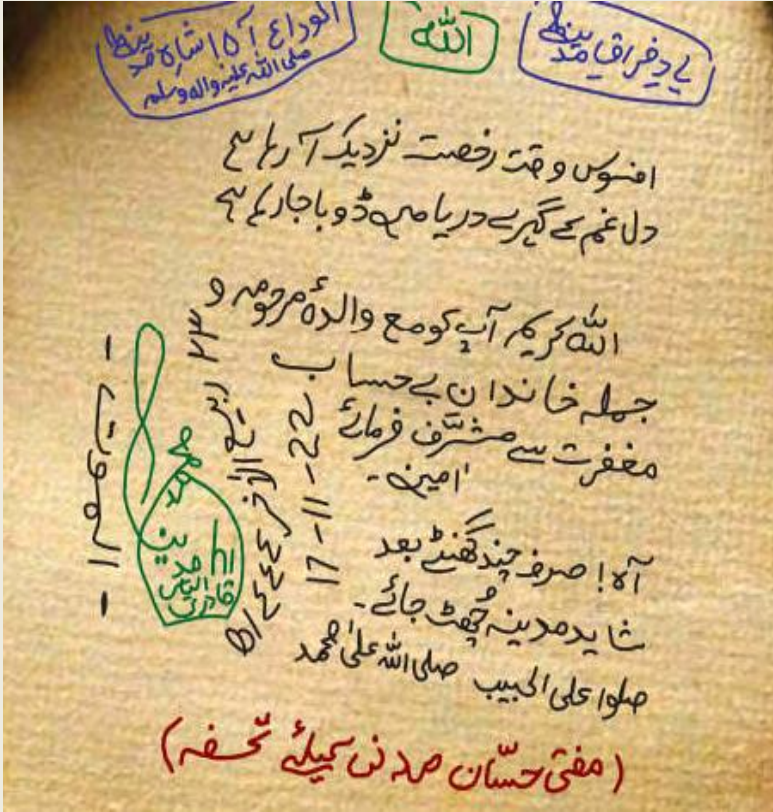 ہے دن فراق مدینہ
اللہ
الوداع آہ! شاہِ مدینہ
صلی اللہ علیہ والہ وسلم
افسوس وقت رخصت نزدیک آ رہا ہے
دل غم کے گہرے دریا میں ڈوبا جا رہا ہے
اللہ کریم آپ کو مع والدۂ مرحومہ و
جملہ خاندان بے حساب
مغفرت سے مشرَّف فرمائے
امین۔
آہ! صرف چند گھنٹے بعد
شاید مدینہ چُھٹ جائے۔
صلوا علی الحبیب صلی اللہ علیٰ محمد
۲۳ ربیع الآخر ۱۴۴۴ھ
17-11-22
محمد
الیاس
قادری
(مفتی حسّان مدنی کیلئے تحفہ)